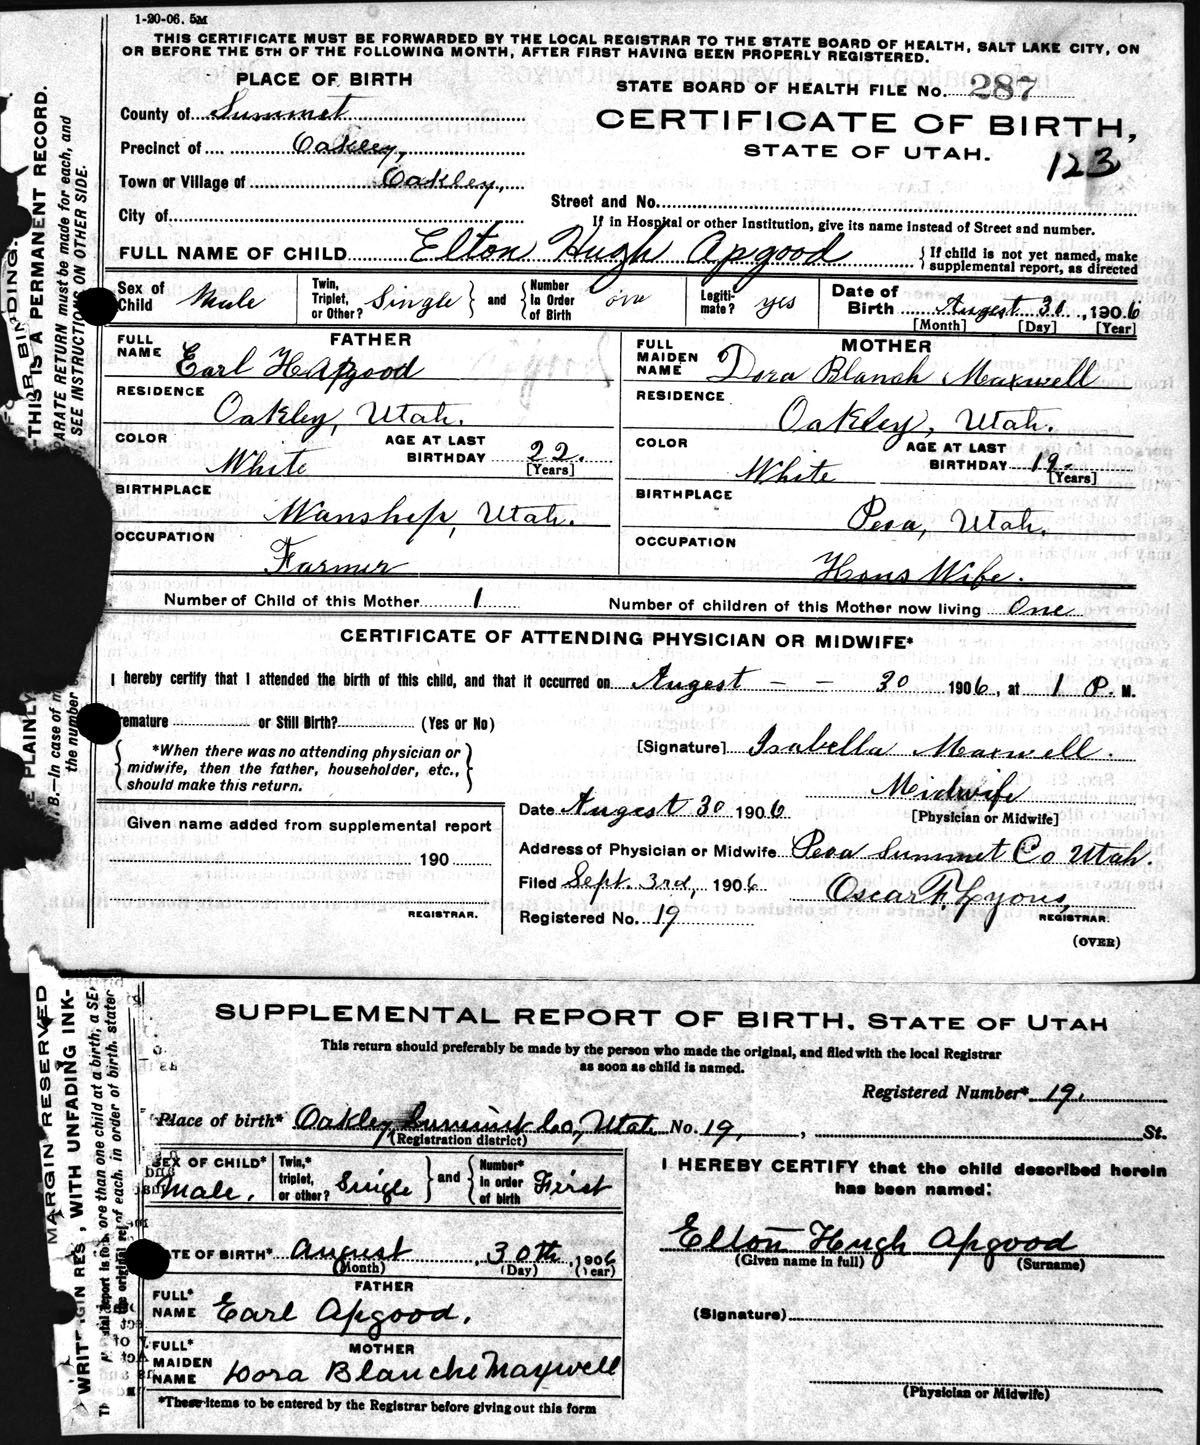 1-20-06. 5M
THIS CERTIFICATE MUST BE FORWARDED BY THE LOCAL REGISTRAR TO THE STATE BOARD OF HEALTH, SALT LAKE CITY, ON
OR BEFORE THE 5TH OF THE FOLLOWING MONTH, AFTER FIRST HAVING BEEN PROPERLY REGISTERED.
PLACE OF BIRTH
STATE BOARD OF HEALTH FILE No. 287
County of Summet
CERTIFICATE OF BIRTH,
Precinct of Oakley,
STATE OF UTAH.
123
Town or Village of Oakley,
Street and No.
City of
If in Hospital or other Institution, give its name instead of Street and number.
FULL NAME OF CHILD Elton Hugh Apgood
{If child is not yet named, make
supplemental report, as directed
Sex of Child Male
Twin, Triplet, or Other? Single } and { Number In Order of Birth one
Legiti-mate? yes
Date of Birth Augest 30, 1906
[Month] [Day] [Year]
FATHER
FULL NAME Earl H Apgood
MOTHER
FULL MAIDEN NAME Dora Blanch Maxwell
RESIDENCE Oakley, Utah.
RESIDENCE Oakley, Utah.
COLOR White
AGE AT LAST BIRTHDAY 22. [Years]
COLOR White
AGE AT LAST BIRTHDAY 19. [Years]
BIRTHPLACE Wanship, Utah.
BIRTHPLACE Peoa, Utah.
OCCUPATION Farmer
OCCUPATION Hous Wife.
Number of Child of this Mother 1
Number of children of this Mother now living One
CERTIFICATE OF ATTENDING PHYSICIAN OR MIDWIFE*
I hereby certify that I attended the birth of this child, and that it occurred on Augest - - 30 1906, at 1 P. M.
remature or Still Birth? (Yes or No)
{ *When there was no attending physician or
midwife, then the father, householder, etc.,
should make this return. }
[Signature] Isabella Maxwell.
Midwife
[Physician or Midwife]
Date Augest 30 1906
Given name added from supplemental report
190
REGISTRAR.
Address of Physician or Midwife Peoa Summet Co Utah.
Filed Sept. 3rd, 1906 Oscar F. Lyons,
REGISTRAR.
Registered No. 19
(OVER)
THIS IS A PERMANENT RECORD.
PARATE RETURN must be made for each, and
SEE INSTRUCTIONS ON OTHER SIDE.
OR BINDING.
E PLAINLY
B.—In case of m
the number
SUPPLEMENTAL REPORT OF BIRTH. STATE OF UTAH
This return should preferably be made by the person who made the original, and filed with the local Registrar
as soon as child is named.
Registered Number* 19.
Place of birth* Oakley, Summit Co, Utah No. 19, , St.
(Registration district)
SEX OF CHILD* Male.
Twin,* triplet, or other? Single } and { Number* in order of birth First
I HEREBY CERTIFY that the child described herein
has been named:
ATE OF BIRTH* August 30th, 1906
(Month) (Day) (Year)
Elton Hugh Apgood
(Given name in full) (Surname)
FATHER
FULL* NAME Earl Apgood.
(Signature)
MOTHER
FULL* MAIDEN NAME Dora Blanche Maxwell
(Physician or Midwife)
*These items to be entered by the Registrar before giving out this form
MARGIN RESERVED
WITH UNFADING INK-
ore than one child at a birth, a SE
of each. in order of birth. stated